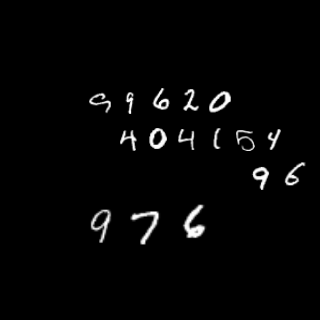 99620
404154
96
976